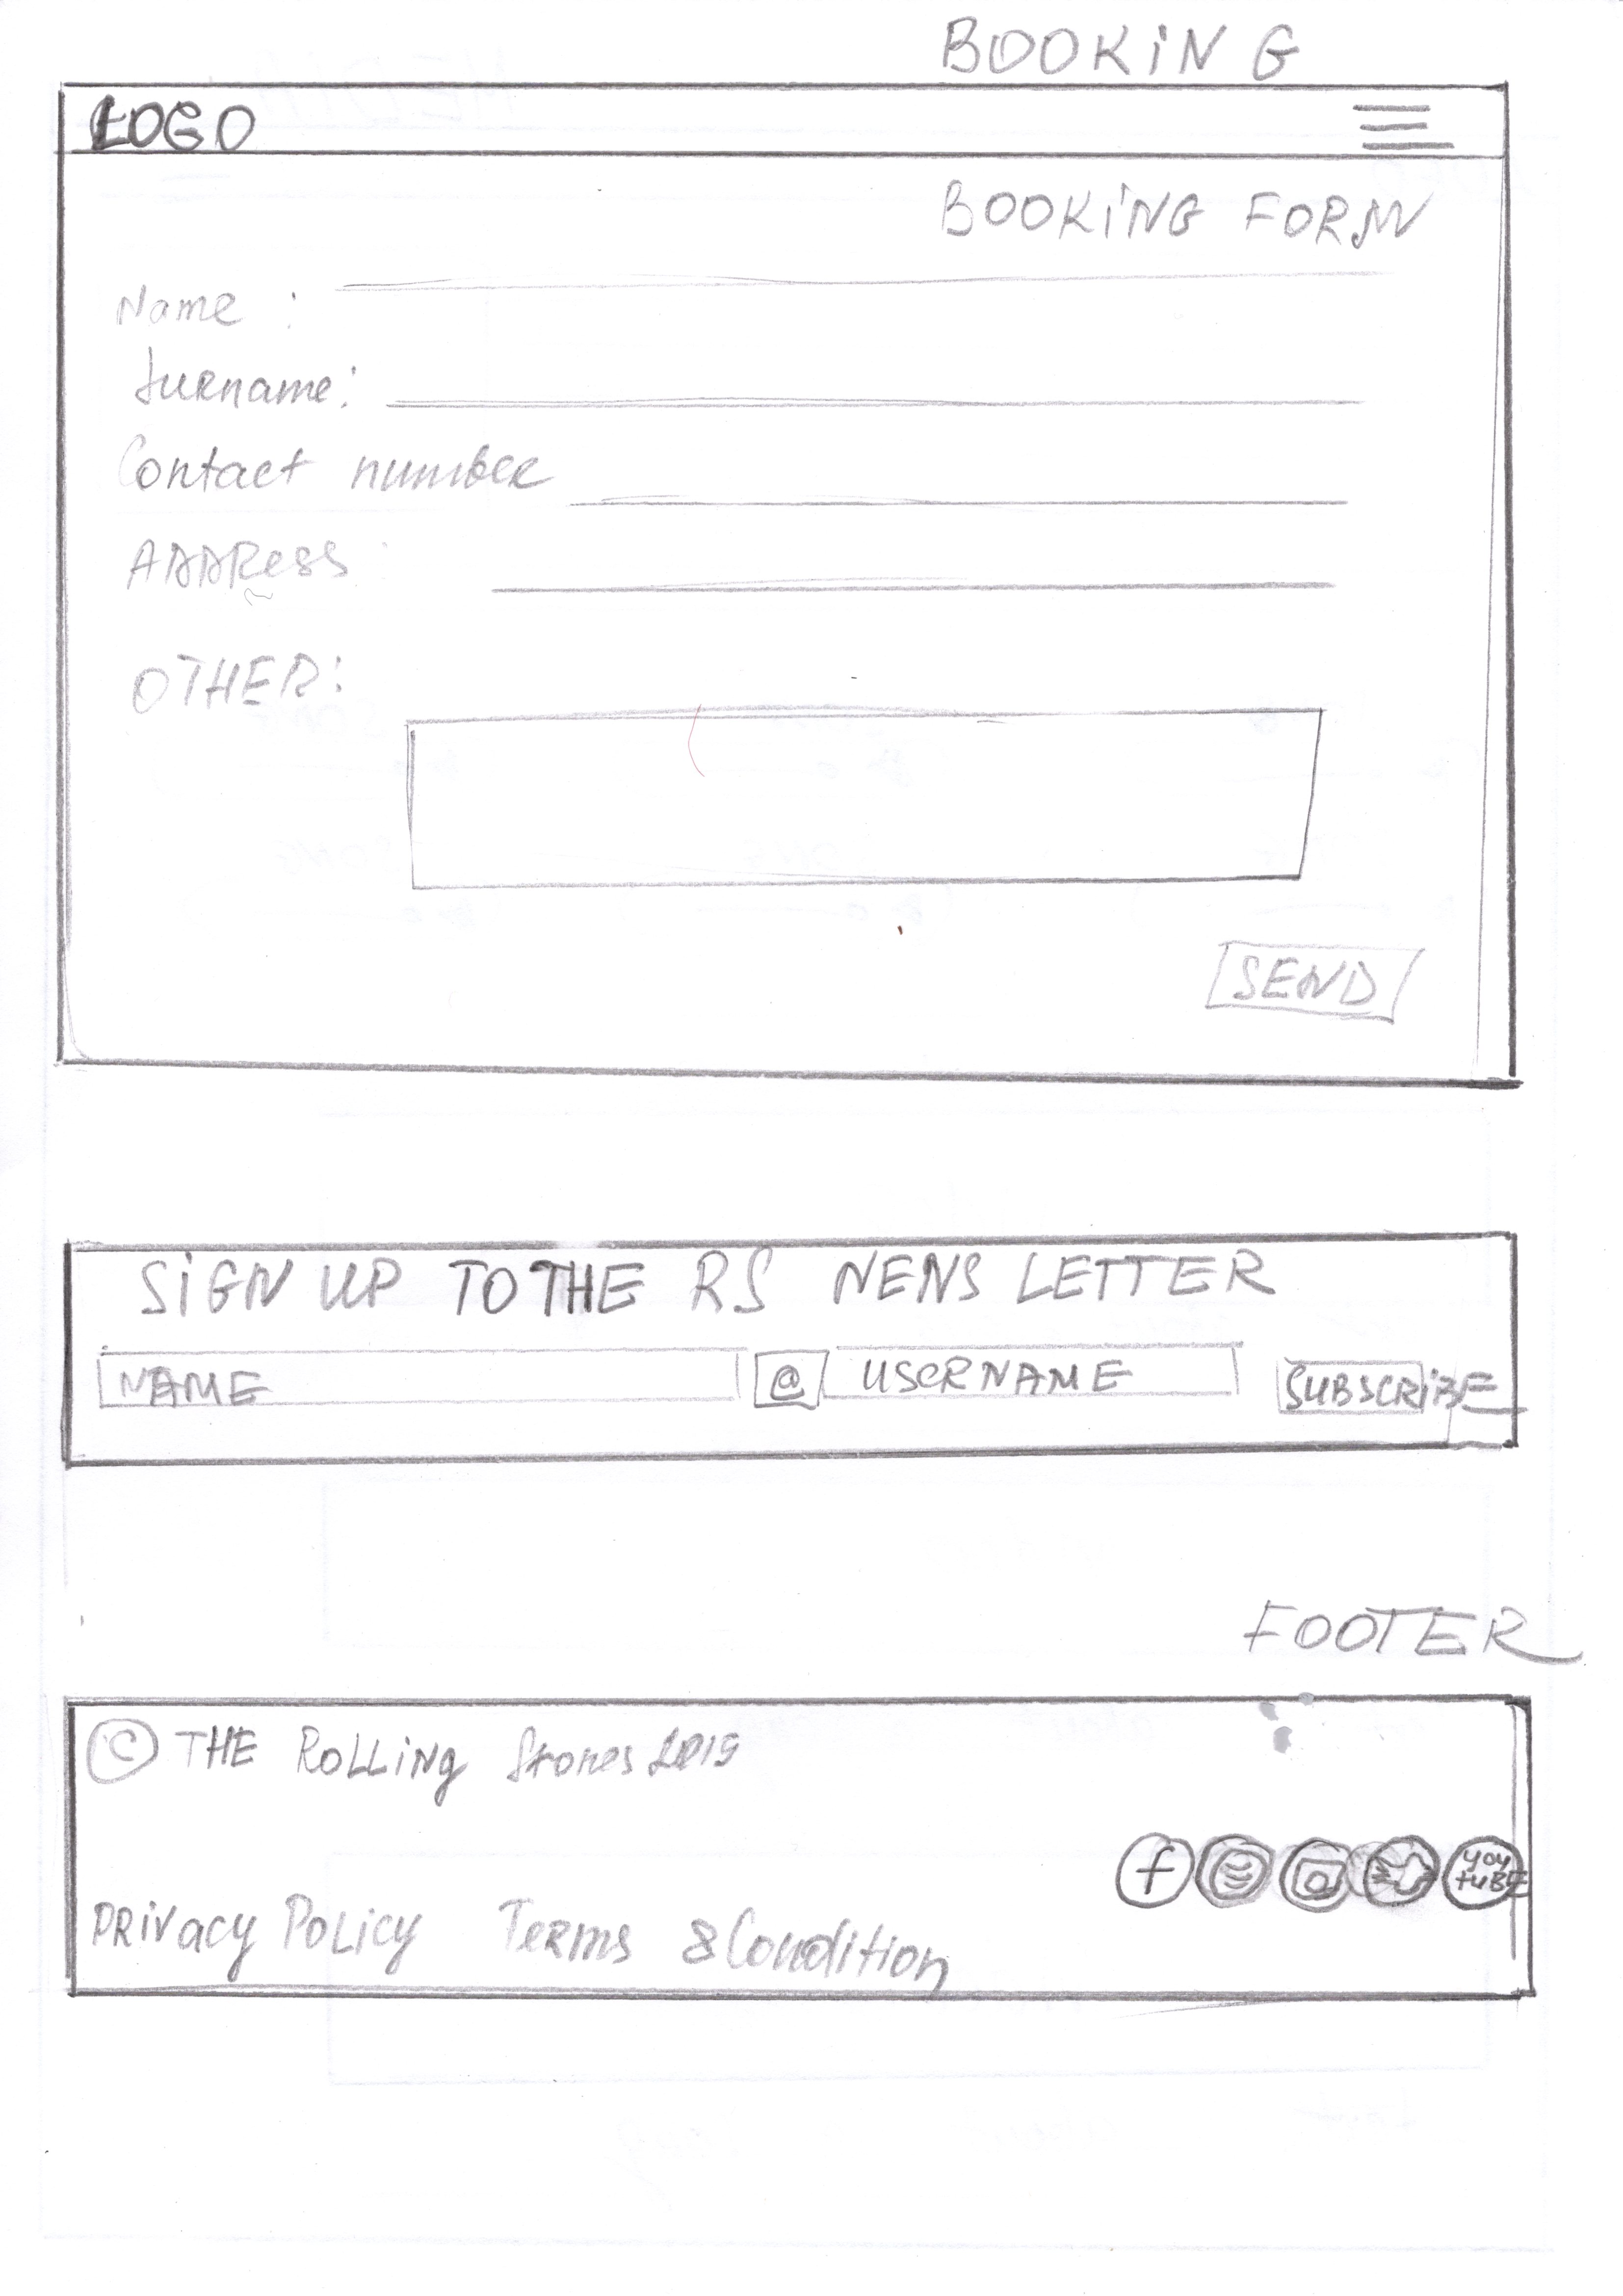 BOOKING
LOGO
BOOKING FORM
Name :
Surname:
Contact number
ADDRess :
OTHER:
SEND
SIGN UP TO THE RS NENS LETTER
NAME @ USERNAME SUBSCRIBE
FOOTER
© THE ROLLiNg Stones 2019
f YOU TUBE
PRIVACY POLICY Terms & Condition